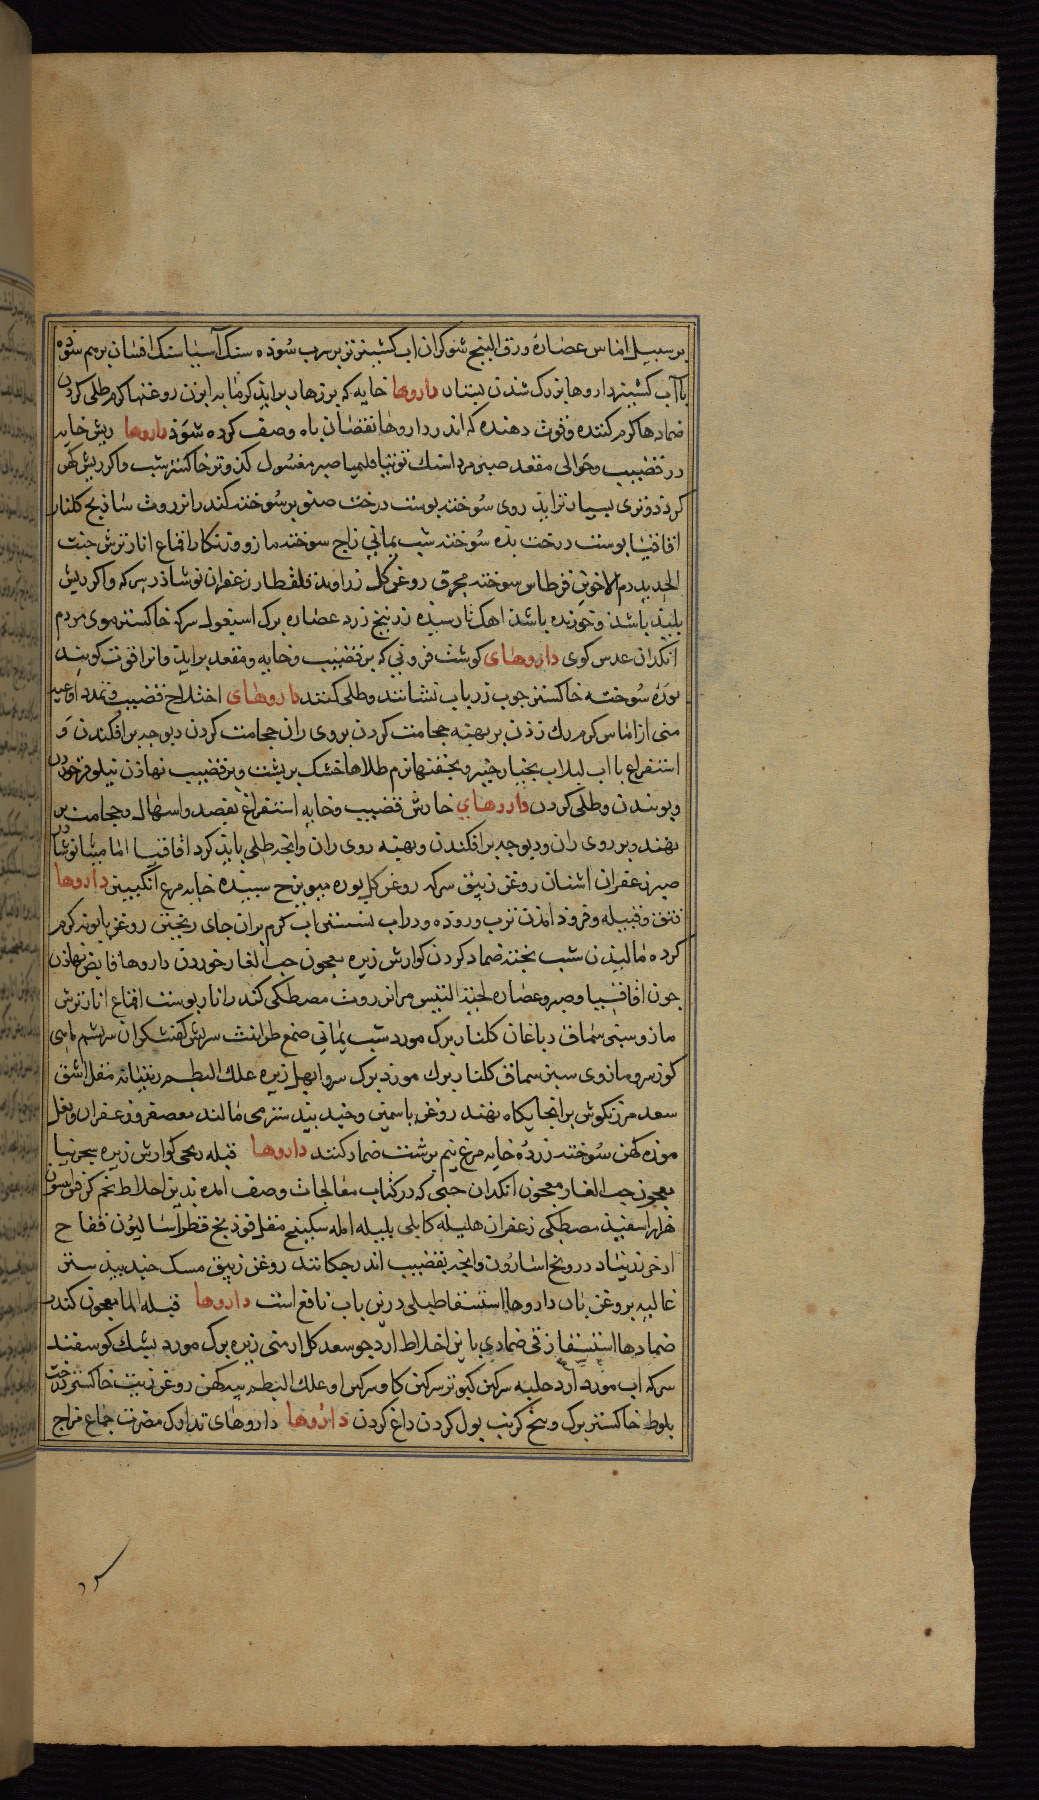 بر سبیل اماس عصارهٔ ورق البنج شوکران اب کشنیز تر بر سرب سوده سنک آسیا سنک افسان برهم سوده
با آب کشنیز داروها بزرک شدن پستان داروها خایه که بر زهار براید کرمابه ابزن روغنها کرم طلی کردن
ضمادها کرم کننده وقوت دهنده که اندر داروها نقصان باه وصف کرده شوذ داروها ریش خایه
در قضیب وحوالی مقعد صبر مرداسنک توتیا قلیمیا صبر مغسول کدو تر خاکستر شب واکر ریش کهن
کردذ وتری بسیار تراید روی سوخته پوست درخت صنوبر سوخته کندر انزروت ساذنج کلنار
اقاقیا پوست درخت بده سوخته شب یمانی زاج سوخته مازو وتنکار اقماع انار ترش خبث
الحدید دم الاخوین قرطاس سوخته محرق روغن کل زراوند قلقطار زعفران نوشاذر سرکه واکر ریش
پلید باشذ وخورنده باشذ اهک نارسیده زرنیخ زرد عصاره برک اسپغول سرکه خاکستر موی مردم
انکدان عدس کوی داروهای کوشت فزونی که بر قضیب وخایه ومقعد براید وانرا توت کویند
بوره سوخته خاکستر چوب رز باب نشانند وطلی کنند داروهای اختلاج قضیب وتمدد اوعیه
منی از اماس کرم رک زذن بر پهنه حجامت کردن بر روی ران حجامت کردن دیوچه بر افکندن و
استفراغ با اب لبلاب بخیارچنبر وبحقنهاء نرم طلاها خشک بر پشت وبر قضیب نهاذن نیلوفر خوردن
وبوییدن وطلی کردن داروهای خارش قضیب وخایه استفراغ بفصد واسهال وحجامت بر
پهنه وبر روی ران ودیوچه بر افکندن وپهنه روی ران وانچه طلی باید کرد اقاقیا مامیثا نوشاذر
صبر زعفران اشنان روغن زیبق سرکه روغن کل بوره میویزج سپیده خایه مرغ انکبین داروها
فتق وقبیله وفروذ امدن ثرب وروده ودر اب نشستن اب کرم بران جای ریختن روغن بابونه کرم
کرده مالیذن شب بخته ضماد کردن کوارش زیره معجون حب الغار خوردن داروها قابض نهاذن
چون اقاقیا وصبر وعصاره لحیة التیس مر انزروت مصطکی کندر انار پوست اقماع انار ترش
مازو سبز سماق دباغان کلنار برک مورد شب یمانی صمغ طراثیث سریش کفشکران سریشم ماهی
کوز سرو مازوی سبز سماق کلنار برک مورد برک سرو ابهل زیره علک البطم ریتیانه مقل اشق
سعد مرزنکوش بر انجایکاه نهند روغن یاسمین وجند بیدستر همی مالند معصفر وزعفران ونعل
موزه کهن سوخته زرده خایه مرغ نیم برشت ضماد کنند داروها قبله ریحی کوارش زیره سجزنیا
معجون حب الغار معجون انکدان حبی که در کتاب معالجات وصف امده بدین اخلاط تخم کرفس ایسون
هزار اسفند مصطکی زعفران هلیله کابلی بلیله امله سکبینج مقل فوذنج فطراسالیون فقاح
اذخر زرنباد درونج اسارون وانچه بقضیب اندر چکانند روغن زیبق مسک جند بیدستر
غالیه بروغن بان داروها استسقا طبلی درین باب نافع است داروها قبله الما معجون کندر
ضمادها استسقا زقی ضمادی باین اخلاط ارد جو سعد کل ارمنی زیره برک مورد پشک کوسفند
سرکه اب مورد ارد حلبه سرکین کبوتر سرکین کاو سرکین او علک البطم پیه کهن روغن زیت خاکستر درخت
بلوط خاکستر برک وبیخ کرنب بول کردن داغ کردن داروها داروهای تدارک مضرت جماع مزاج
سرد